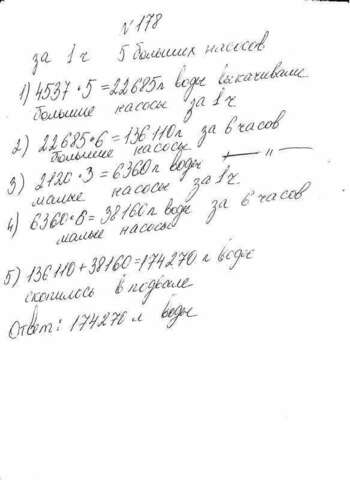 № 178
за 1 ч 5 больших насосов
1) 4537 · 5 = 22685 л воды выкачивали
большие насосы за 1 ч
2) 22685 · 6 = 136110 л за 6 часов
большие насосы
3) 2120 · 3 = 6360 л воды —— " ——
малые насосы за 1 ч.
4) 6360 · 6 = 38160 л воды за 6 часов
малые насосы
5) 136110 + 38160 = 174270 л воды
скопилось в подвале
Ответ: 174270 л воды